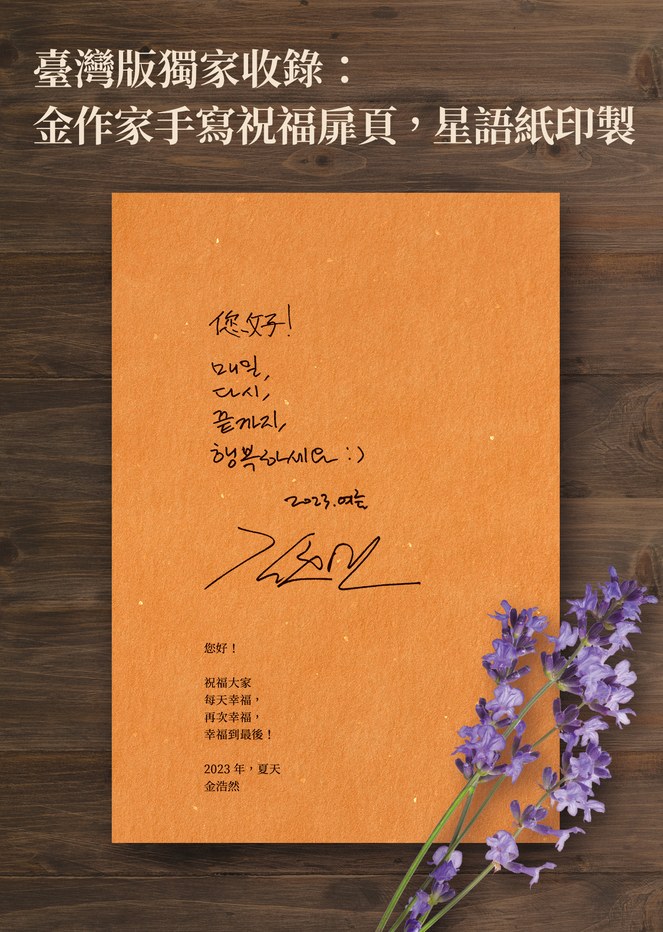 臺灣版獨家收錄：
金作家手寫祝福扉頁，星語紙印製
您好!
매일,
다시,
끝까지,
행복하세요 :)
2023.여름
您好！
祝福大家
每天幸福，
再次幸福，
幸福到最後！
2023 年，夏天
金浩然